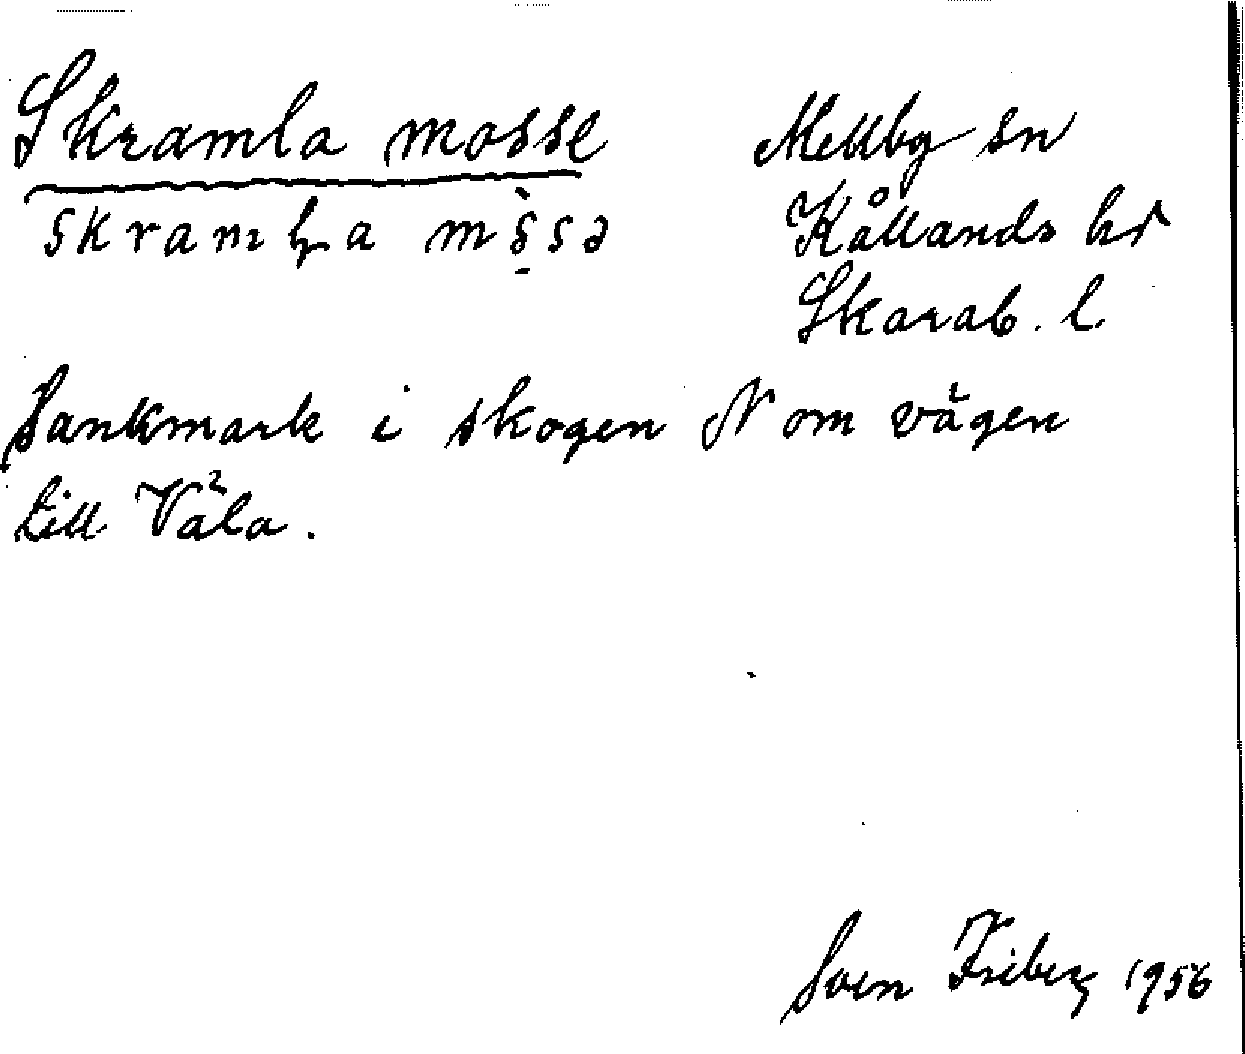 Skramla mosse
skramḷa mòs̱sə
Mellby sn
Kållands hd
Skarab. l.
Sankmark i skogen N om vägen
till Våla.
Sven Friberg 1956